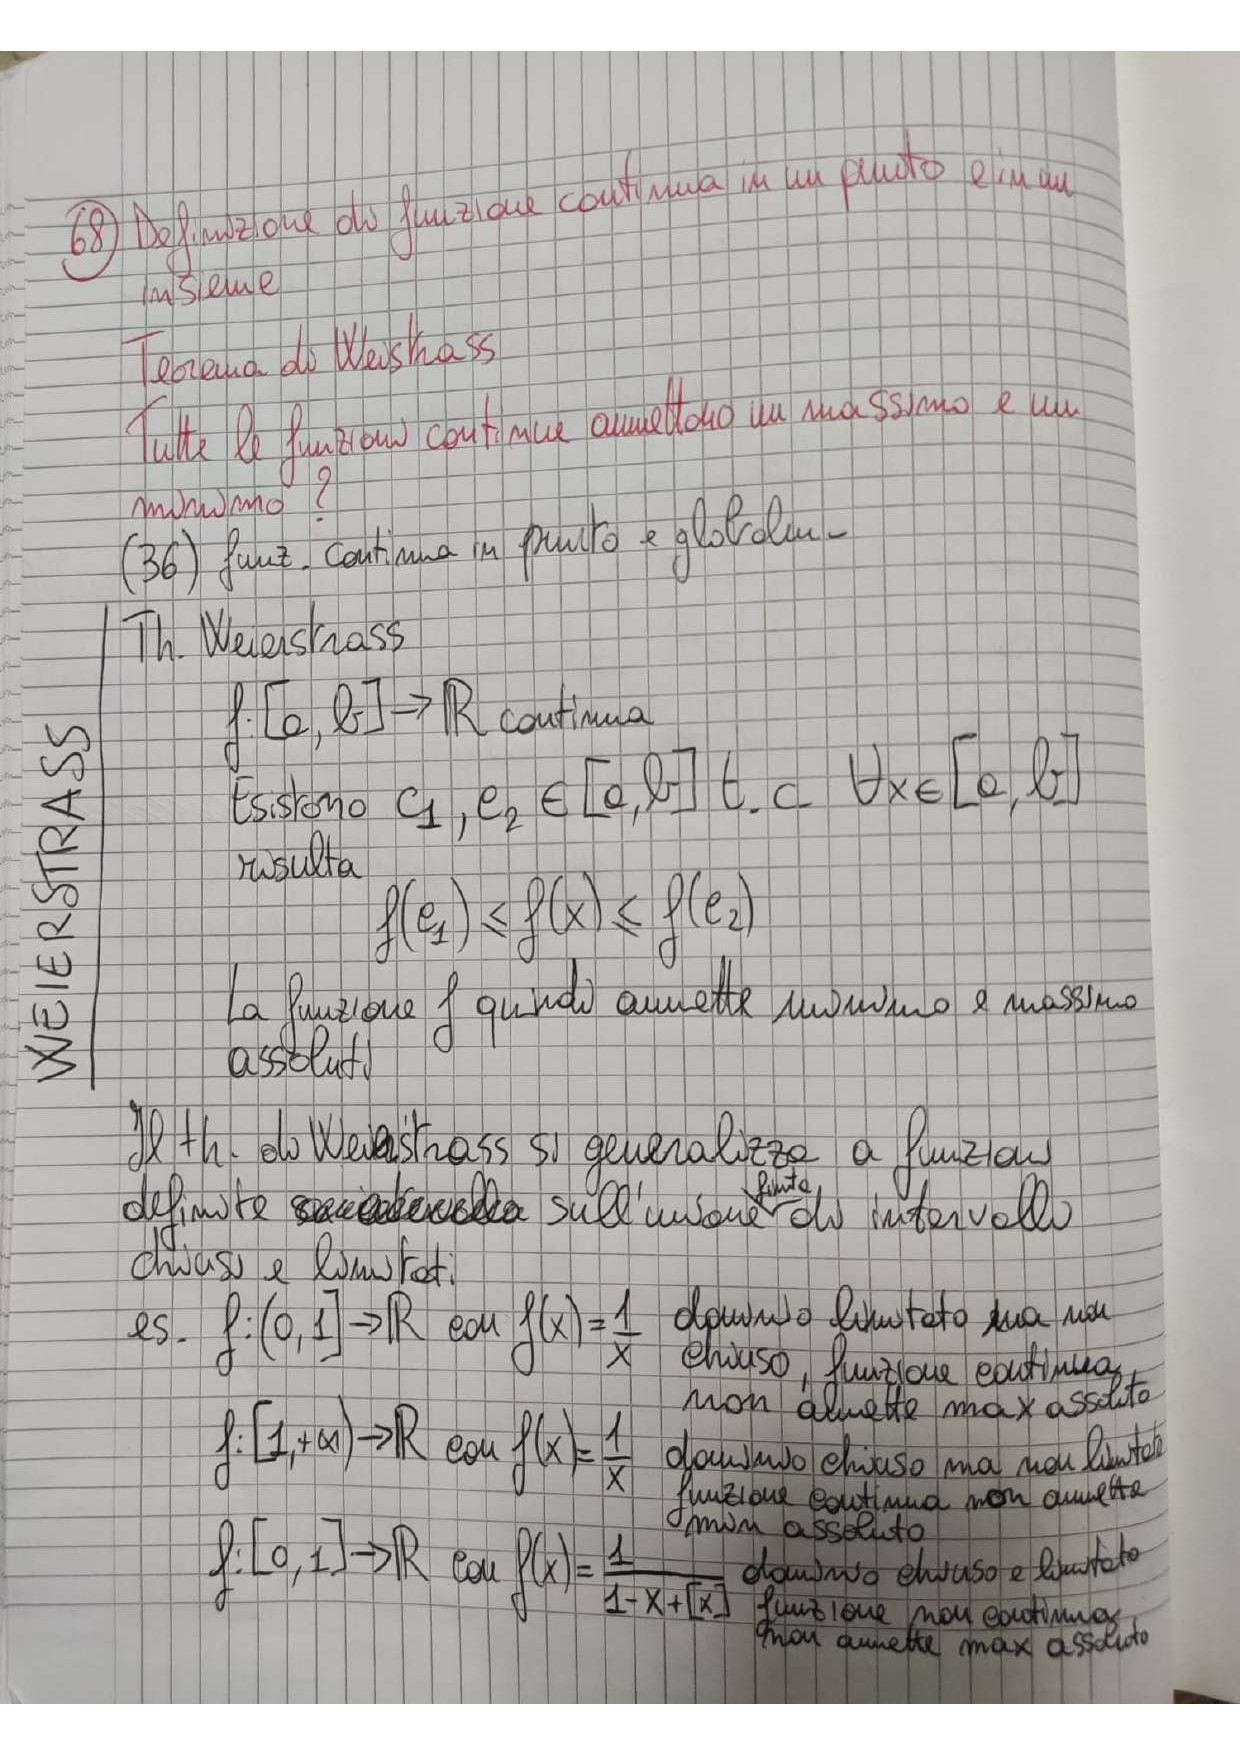 68) Definizione di funzione continua in un punto e in un
insieme
Teorema di Weistrass
Tutte le funzioni continue ammettono un massimo e un
minimo ?
(36) funz. continua in punto e globalm.
WEIERSTRASS
Th. Weierstrass
f: [a, b] → ℝ continua
Esistono c₁, c₂ ∈ [a, b] t. c ∀x ∈ [a, b]
risulta
f(c₁) ≤ f(x) ≤ f(c₂)
La funzione f quindi ammette minimo e massimo
assoluti
Il th. di Weierstrass si generalizza a funzioni
definite sull'unione finita di intervalli
chiusi e limitati
es. f: (0, 1] → ℝ con f(x) = 1/x dominio limitato ma non
chiuso, funzione continua,
non ammette max assoluto
f: [1, +∞) → ℝ con f(x) = 1/x dominio chiuso ma non limitato
funzione continua non ammette
min assoluto
f: [0, 1] → ℝ con f(x) = 1/(1-x+[x]) dominio chiuso e limitato
funzione non continua,
non ammette max assoluto